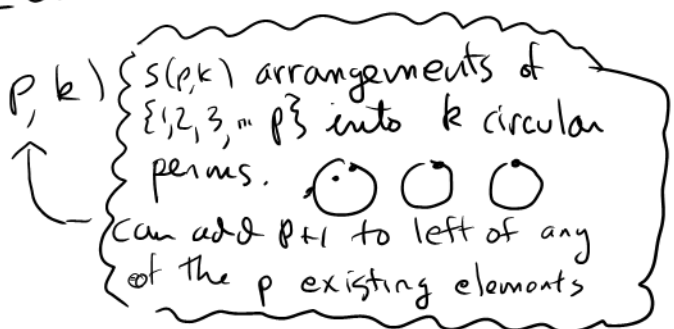 p,k) s(p,k) arrangements of
{1,2,3,... p} into k circular
perms.
can add p+1 to left of any
of the p existing elements